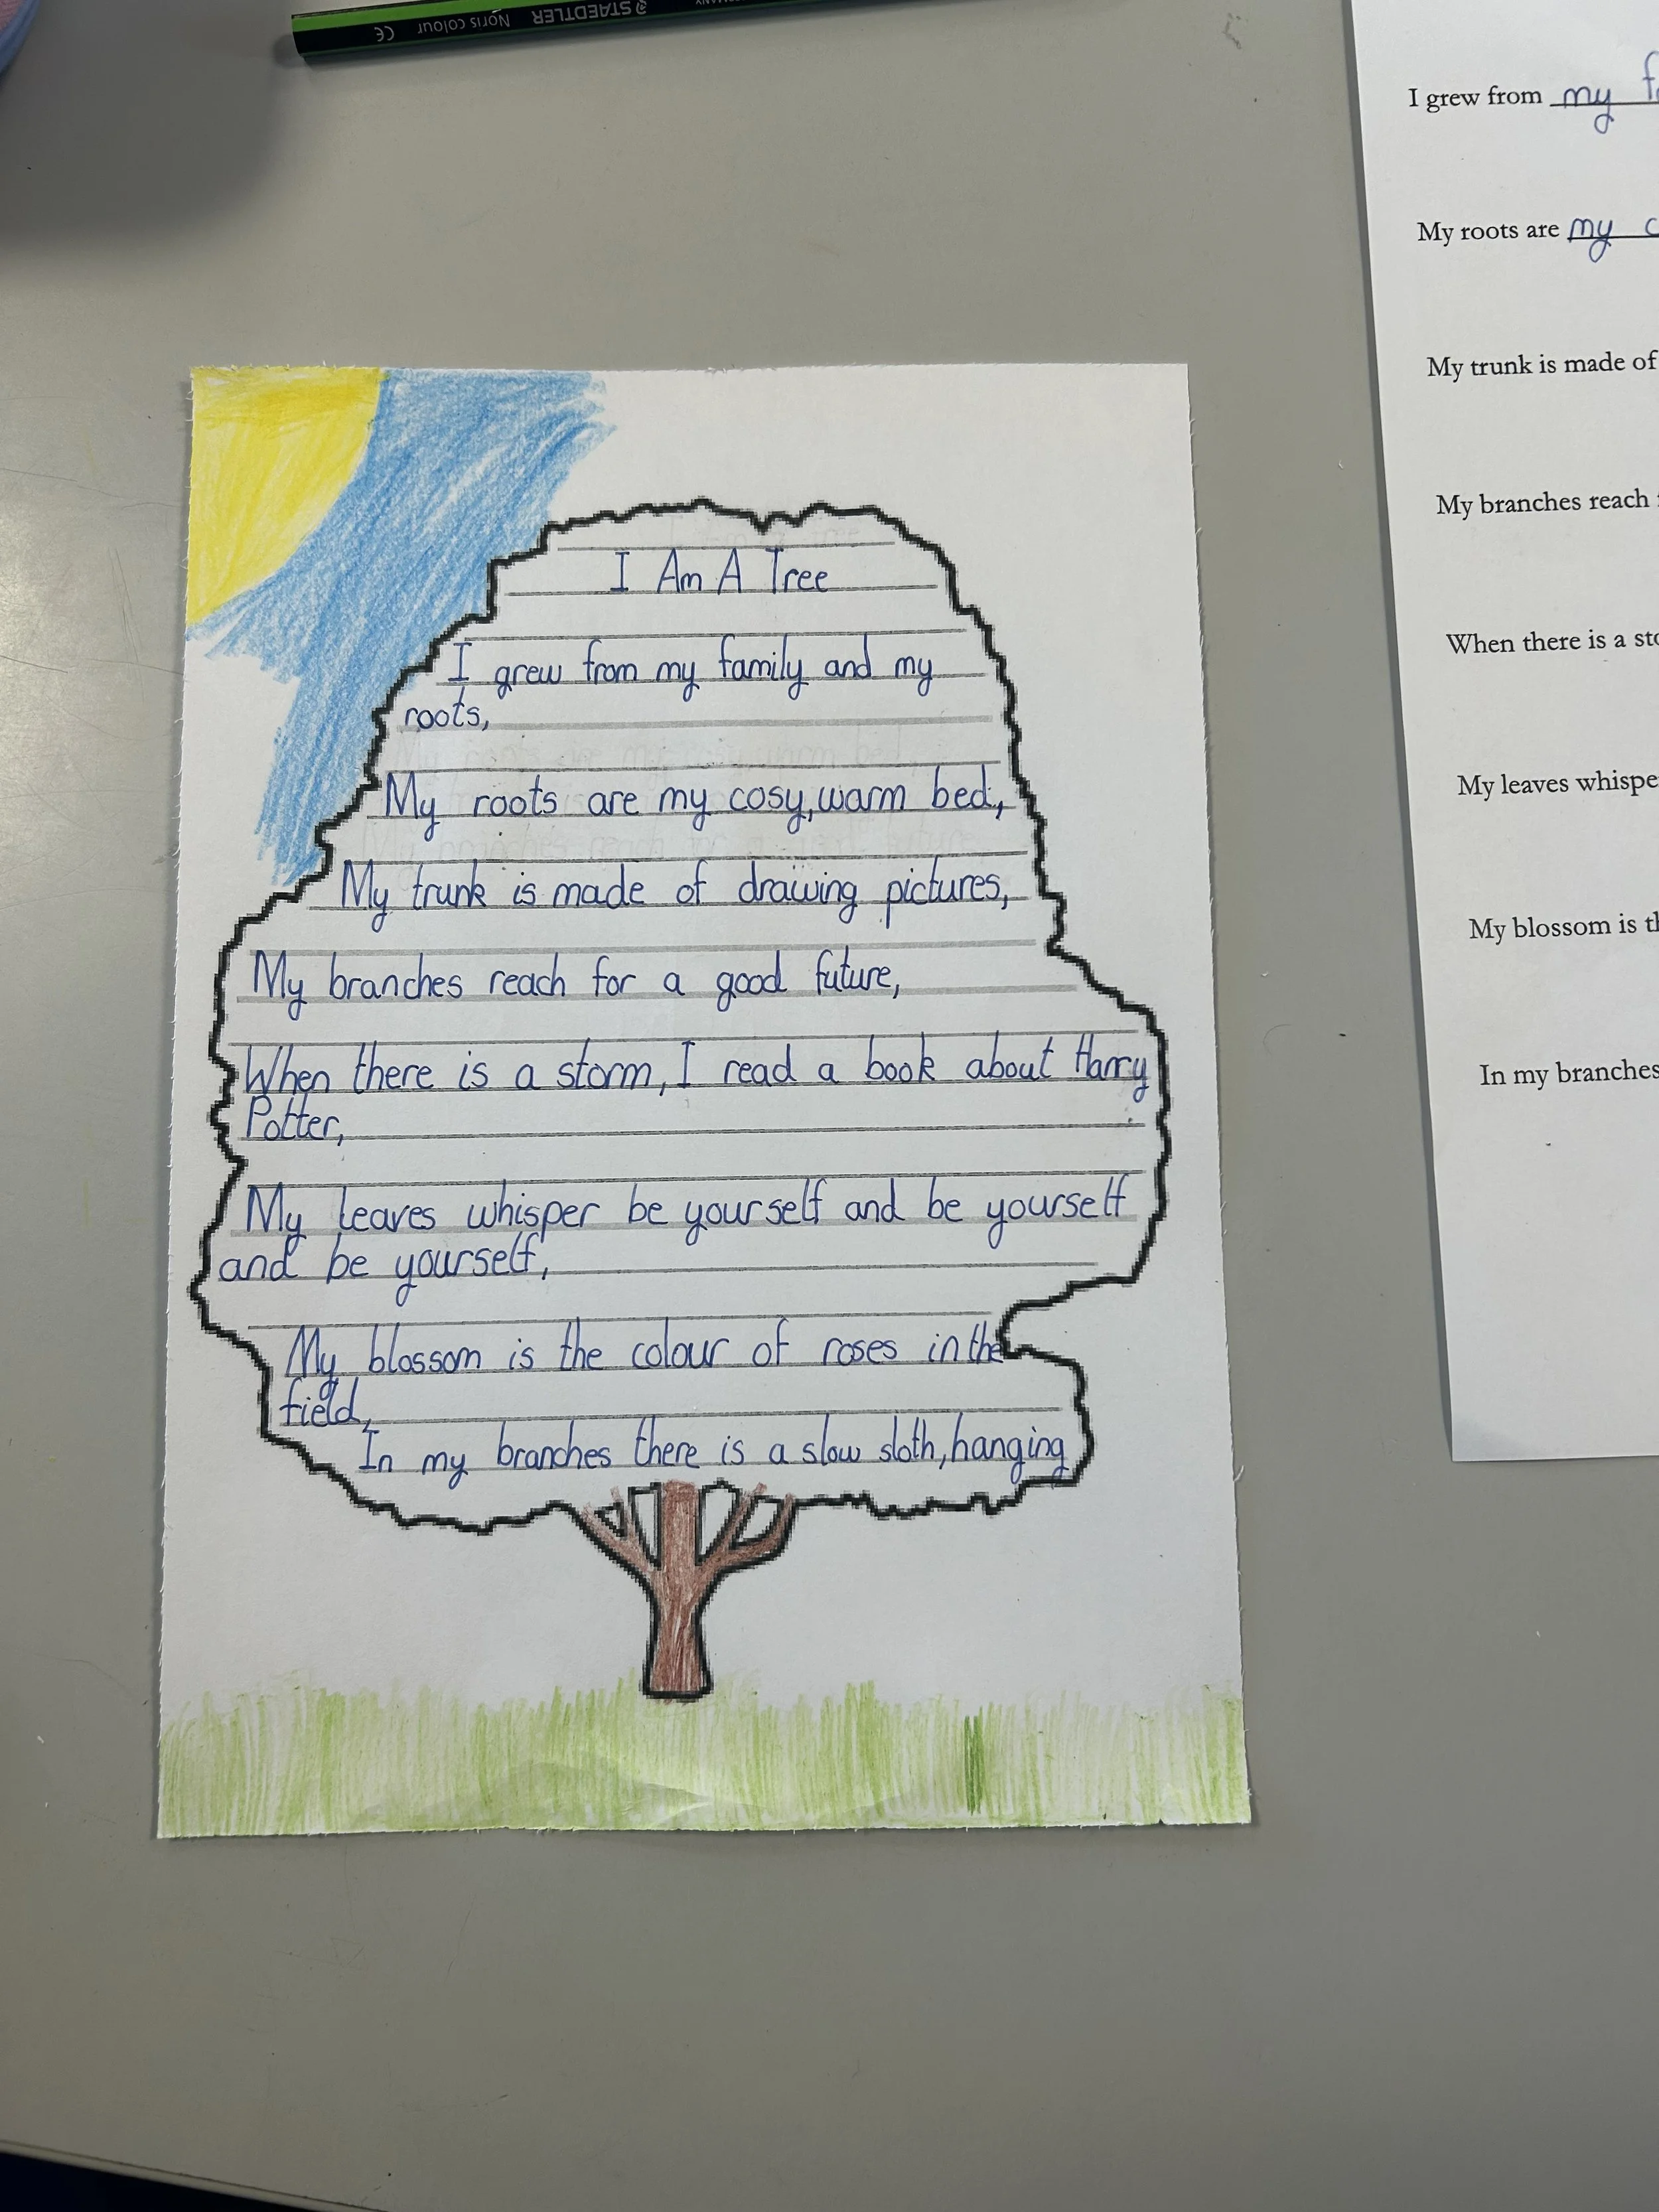 STAEDTLER Noris colour CE
I Am A Tree
I grew from my family and my
roots,
My roots are my cosy, warm bed,
My trunk is made of drawing pictures,
My branches reach for a good future,
When there is a storm, I read a book about Harry
Potter,
My leaves whisper be yourself and be yourself
and be yourself,
My blossom is the colour of roses in the
field,
In my branches there is a slow sloth, hanging
I grew from my
My roots are my
My trunk is made of
My branches reach
When there is a
My leaves
My blossom is
In my branches